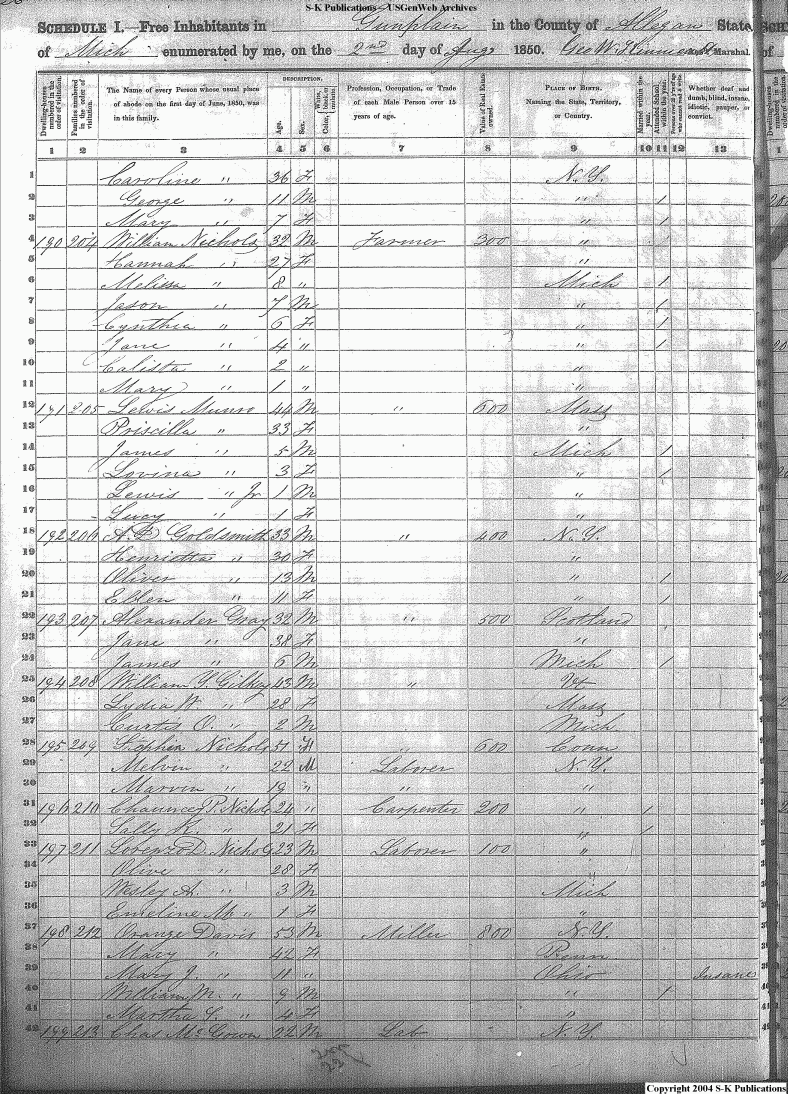 S-K Publications - USGenWeb Archives
SCHEDULE I.—Free Inhabitants in Gunplain in the County of Allegan State
of Mich enumerated by me, on the 2nd day of Aug 1850. Geo W. Ass't Marshal.
DESCRIPTION.
Dwelling-houses numbered in the order of visitation. Families numbered in the order of visitation. The Name of every Person whose usual place of abode on the first day of June, 1850, was in this family. Age. Sex. Color, White, black, or mulatto. Profession, Occupation, or Trade of each Male Person over 15 years of age. Value of Real Estate owned. PLACE OF BIRTH. Naming the State, Territory, or Country. Married within the year. Attended School within the year. Persons over 20 y'rs of age who cannot read & write. Whether deaf and dumb, blind, insane, idiotic, pauper, or convict.
1 2 3 4 5 6 7 8 9 10 11 12 13
1 Caroline " 36 F N.Y.
2 George " 11 M " /
3 Mary " 7 F " /
4 190 204 William Nichols 32 M Farmer 300 "
5 Hannah " 27 F "
6 Melissa " 8 " Mich /
7 Jason " 7 M " /
8 Cynthia " 6 F " /
9 Jane " 4 " " /
10 Calista " 2 " "
11 Mary " 1 " "
12 191 205 Lewis Munro 44 M " 600 Mass
13 Priscilla " 33 F "
14 James " 5 M Mich /
15 Lovina " 3 F " /
16 Lewis " Jr 1 M "
17 Lucy " 1 F "
18 192 206 Goldsmith 33 M " 400 N.Y.
19 Henrietta " 30 F "
20 Oliver " 13 M " /
21 Ellen " 11 F " /
22 193 207 Alexander Gray 32 M " 500 Scotland
23 Jane " 38 F "
24 James " 6 M Mich /
25 194 208 William Y. Gilkey 43 M " Vt
26 Lydia W " 28 F Mass
27 Curtis O. " 2 M Mich
28 195 209 Stephen Nichols 51 M " 600 Conn
29 Melvin " 22 M Laborer N.Y.
30 Marvin " 19 " " "
31 196 210 Chauncey P. Nichols 24 " Carpenter 200 " /
32 Sally R. " 21 F " /
33 197 211 Lorenzo D. Nichols 23 M Laborer 100 "
34 Olive " 28 F "
35 Wesley A. " 3 M Mich
36 Emeline M. " 1 F "
37 198 212 Orange Davis 53 M Miller 800 N.Y.
38 Mary " 42 F Penn
39 Mary J. " 11 " Ohio Insane
40 William M. " 9 M " /
41 Martha L. " 4 F "
42 199 213 Chas McGowen 22 M Lab N.Y.
Copyright 2004 S-K Publications